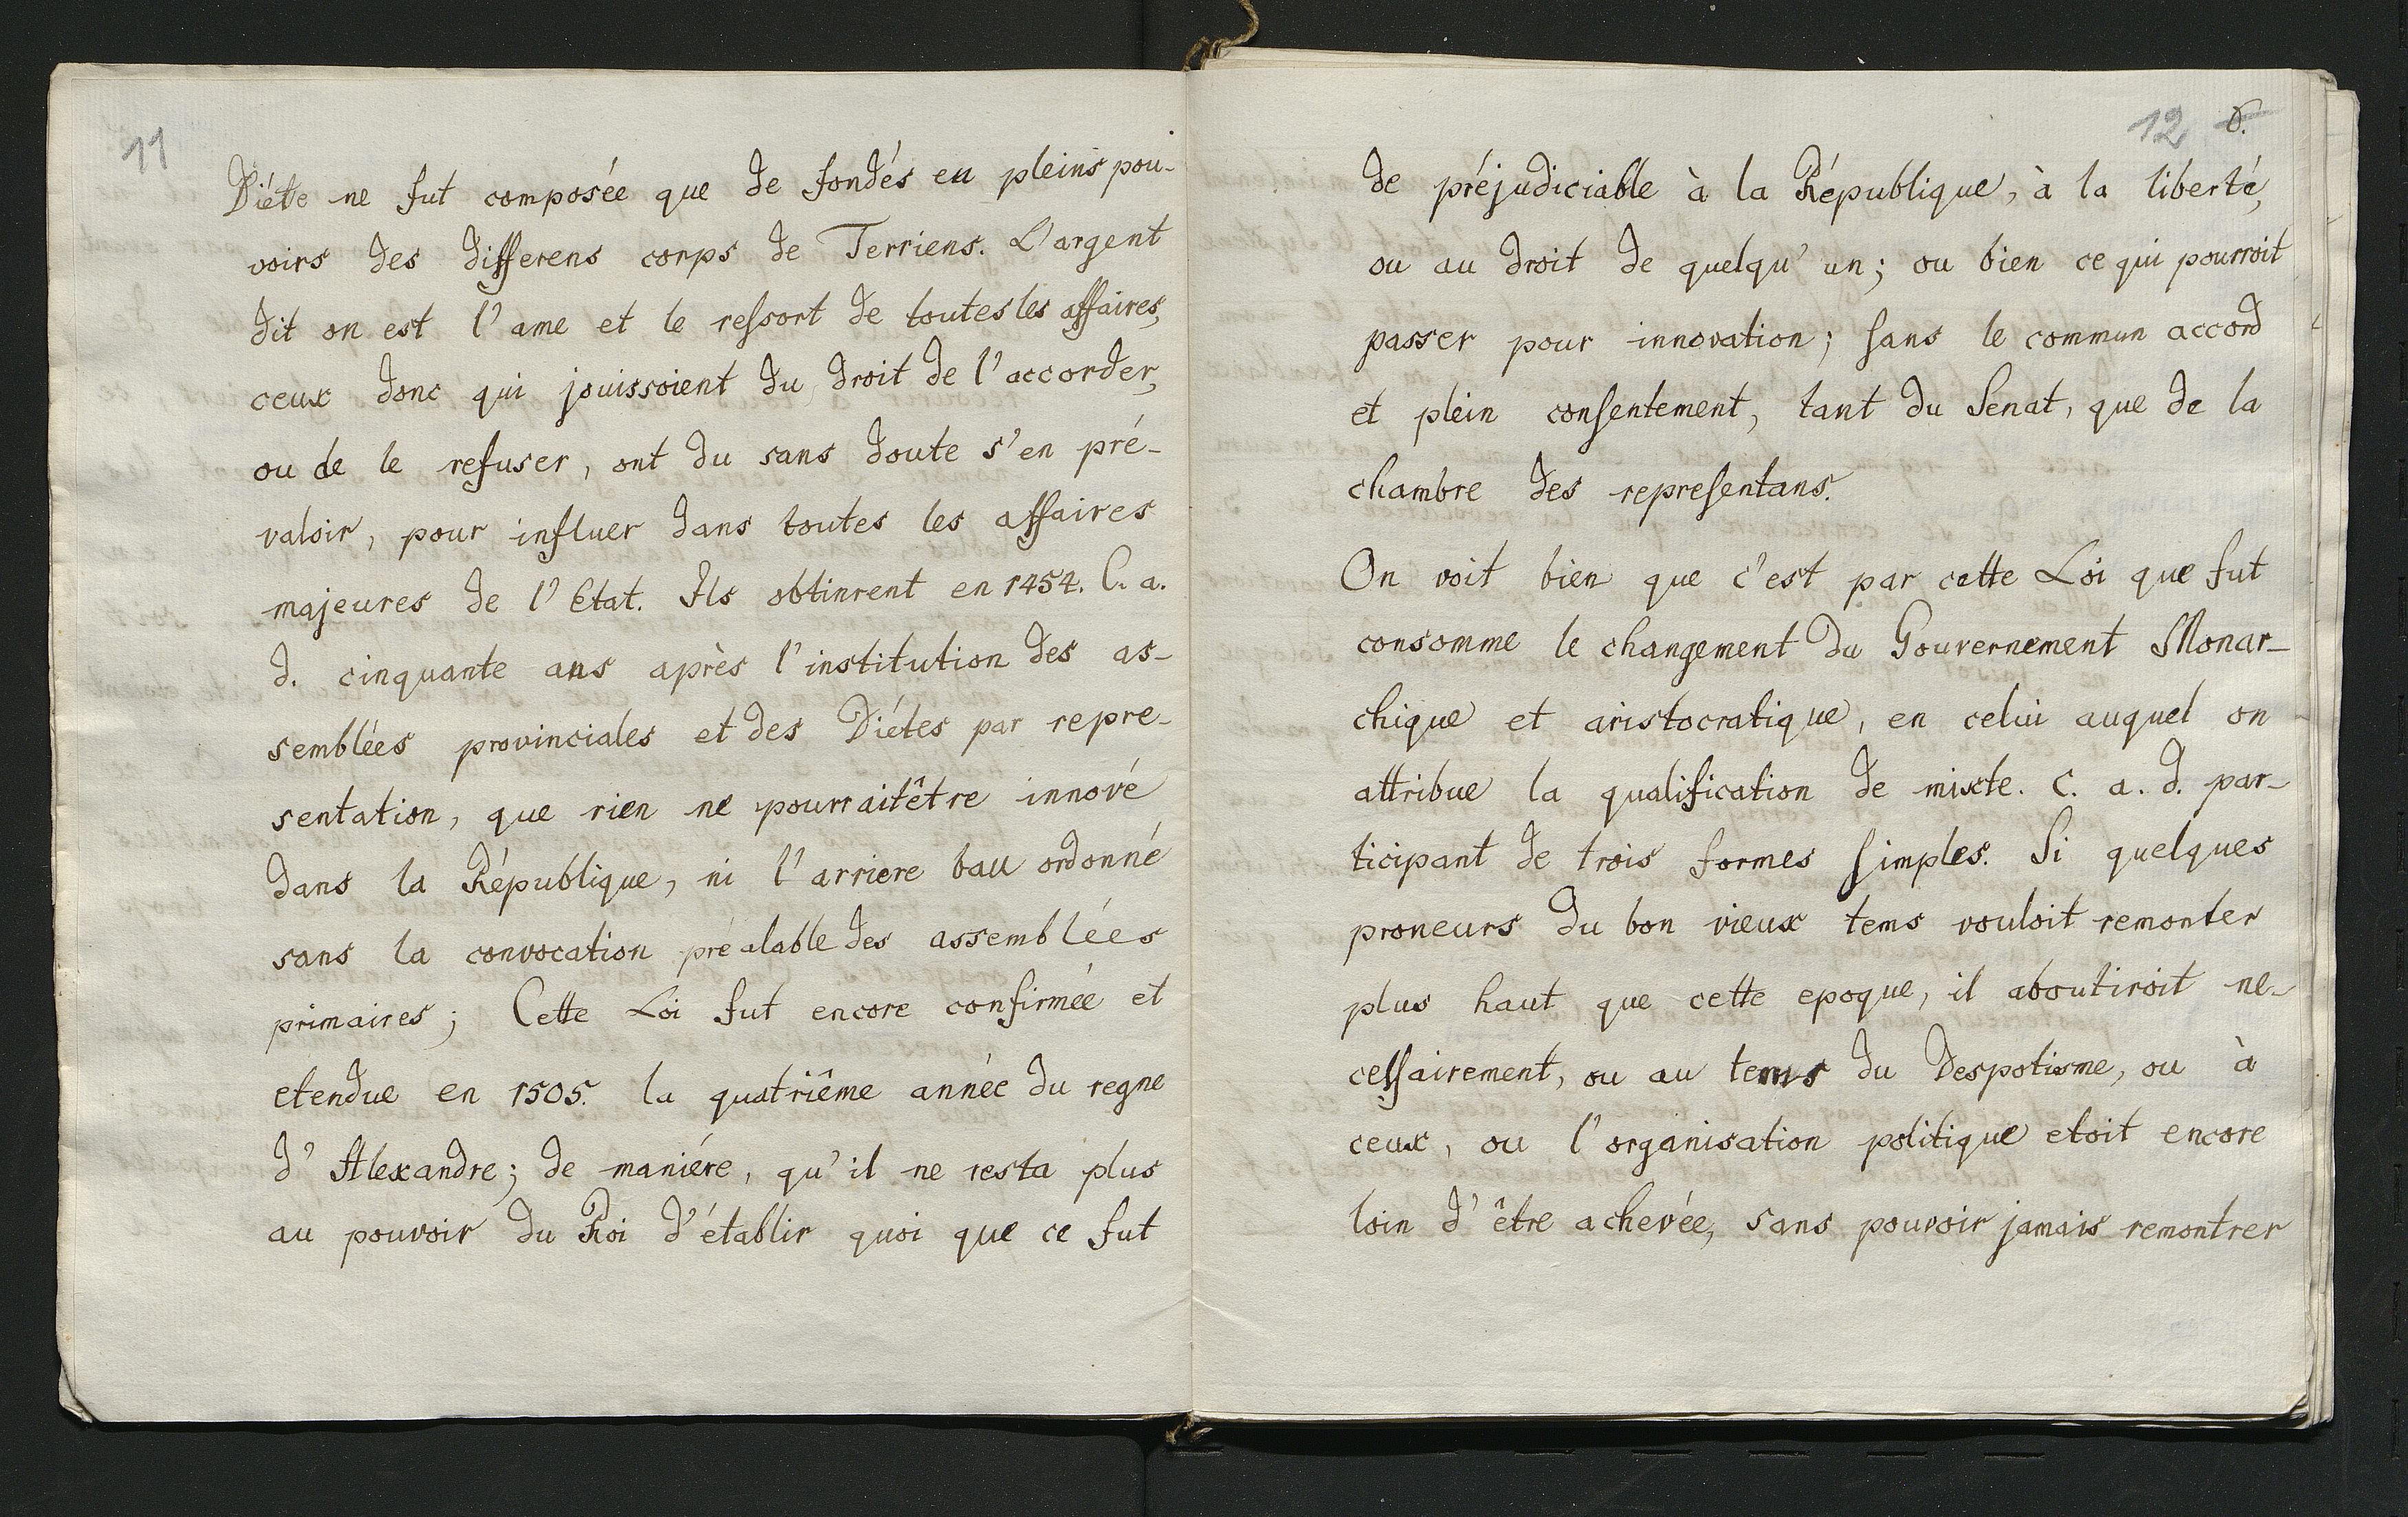 11
Diéte ne fut composée que de fondés en pleins pou-
voirs des differens corps de Terriens. L'argent
dit on est l'ame et le ressort de toutes les affaires,
ceux donc qui jouissoient du droit de l'accorder,
ou de le refuser, ont du sans doute s'en pré-
valoir, pour influer dans toutes les affaires
majeures de l'Etat. Ils obtinrent en 1454. C. a.
d. cinquante ans après l'institution des as-
semblées provinciales et des Diétes par repre-
sentation, que rien ne pourraitêtre innové
dans la République, ni l'arriere bau ordonné
sans la convocation préalable des assemblées
primaires; Cette Loi fut encore confirmée et
etendue en 1505. la quatriême année du regne
d'Alexandre; de maniére, qu'il ne resta plus
au pouvoir du Roi d'établir quoi que ce fut
12 6.
de préjudiciable à la République, à la liberté,
ou au droit de quelqu'un; ou bien ce qui pourroit
passer pour innovation; sans le commun accord
et plein consentement, tant du Senat, que de la
chambre des representans.
On voit bien que c'est par cette Loi que fut
consomme le changement du Gouvernement Monar-
chique et aristocratique, en celui auquel on
attribue la qualification de mixte. C. a. d. par-
ticipant de trois formes simples. Si quelques
proneurs du bon vieux tems vouloit remonter
plus haut que cette epoque, il aboutiroit ne-
cessairement, ou au tems du Despotisme, ou à
ceux, ou l'organisation politique etoit encore
loin d'être achevée, sans pouvoir jamais remontrer